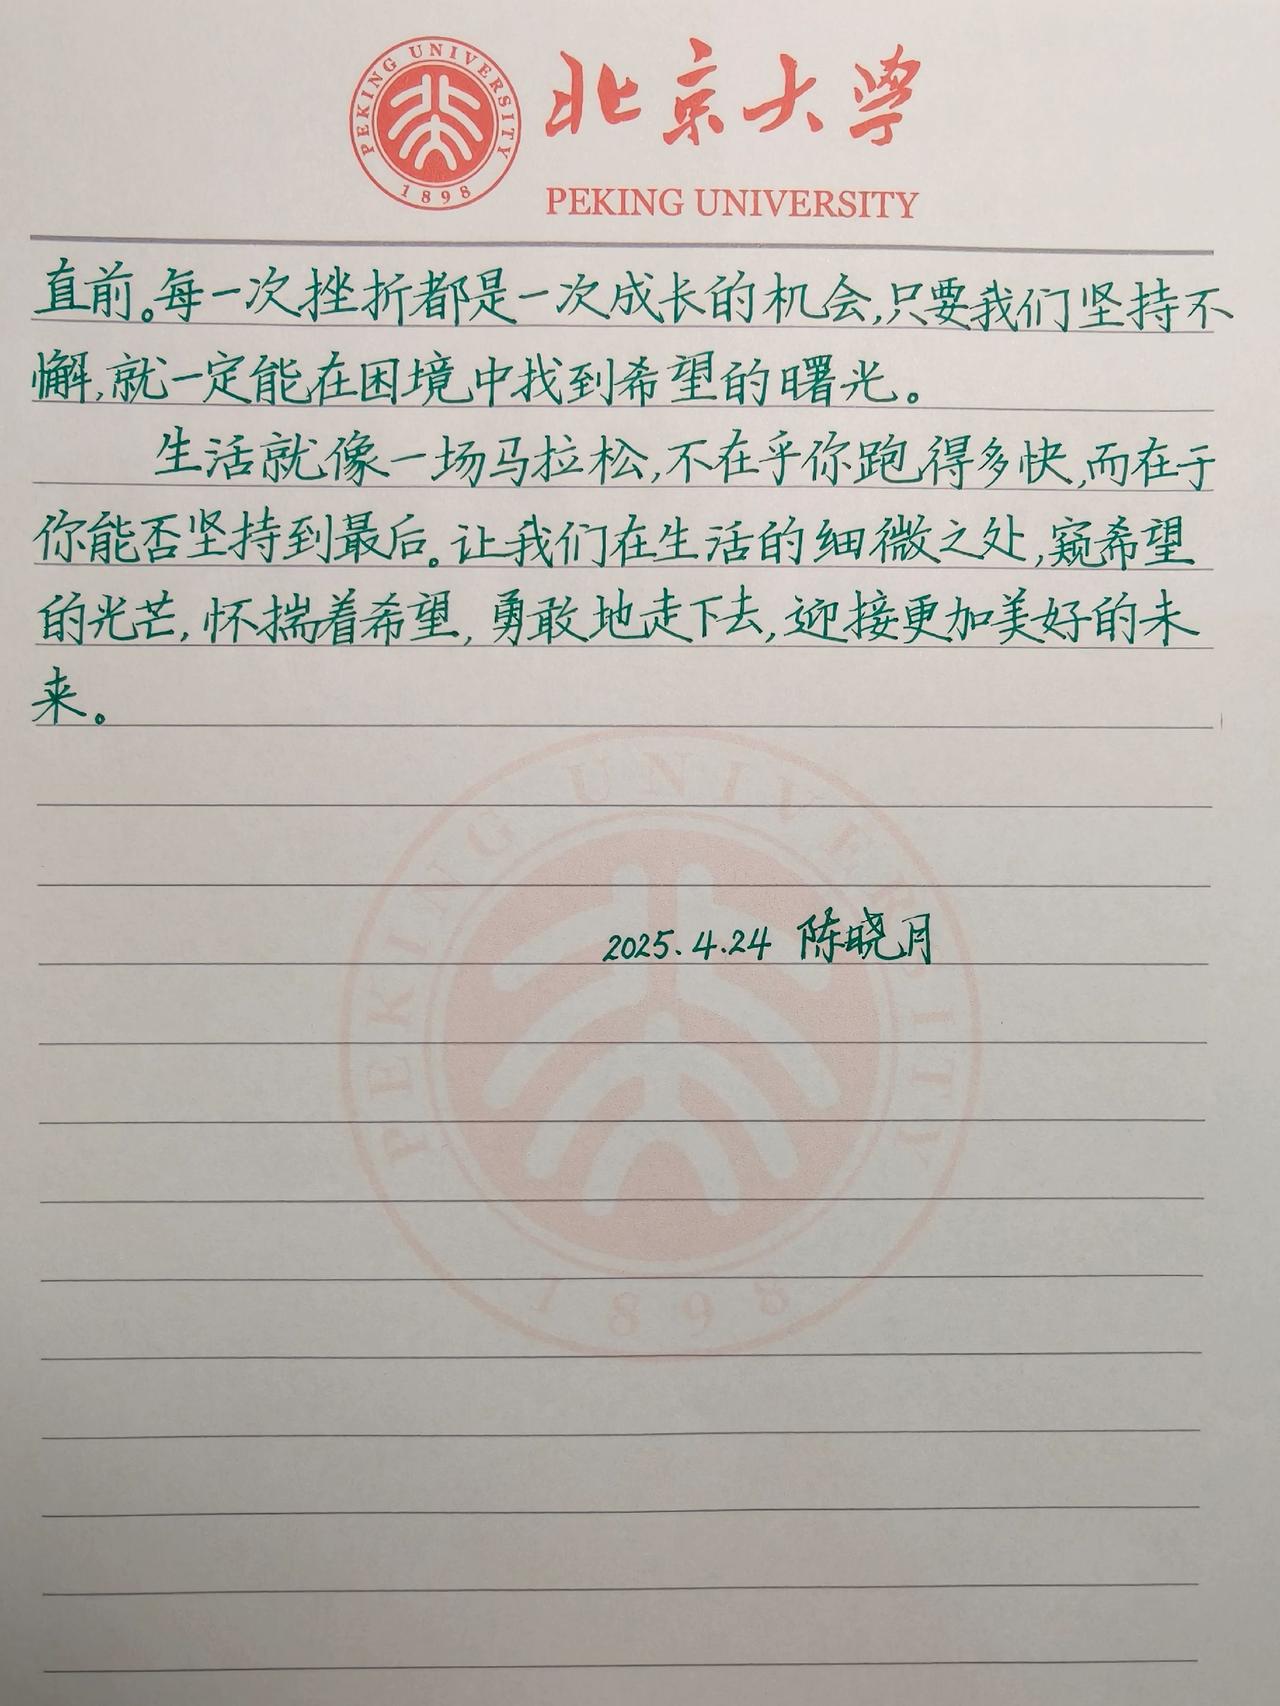 PEKING UNIVERSITY
1898
北京大学
PEKING UNIVERSITY
直前。每一次挫折都是一次成长的机会,只要我们坚持不
懈,就一定能在困境中找到希望的曙光。
生活就像一场马拉松,不在乎你跑得多快,而在于
你能否坚持到最后。让我们在生活的细微之处,窥希望
的光芒,怀揣着希望,勇敢地走下去,迎接更加美好的未
来。
2025.4.24 陈晓月
PEKING UNIVERSITY
1898